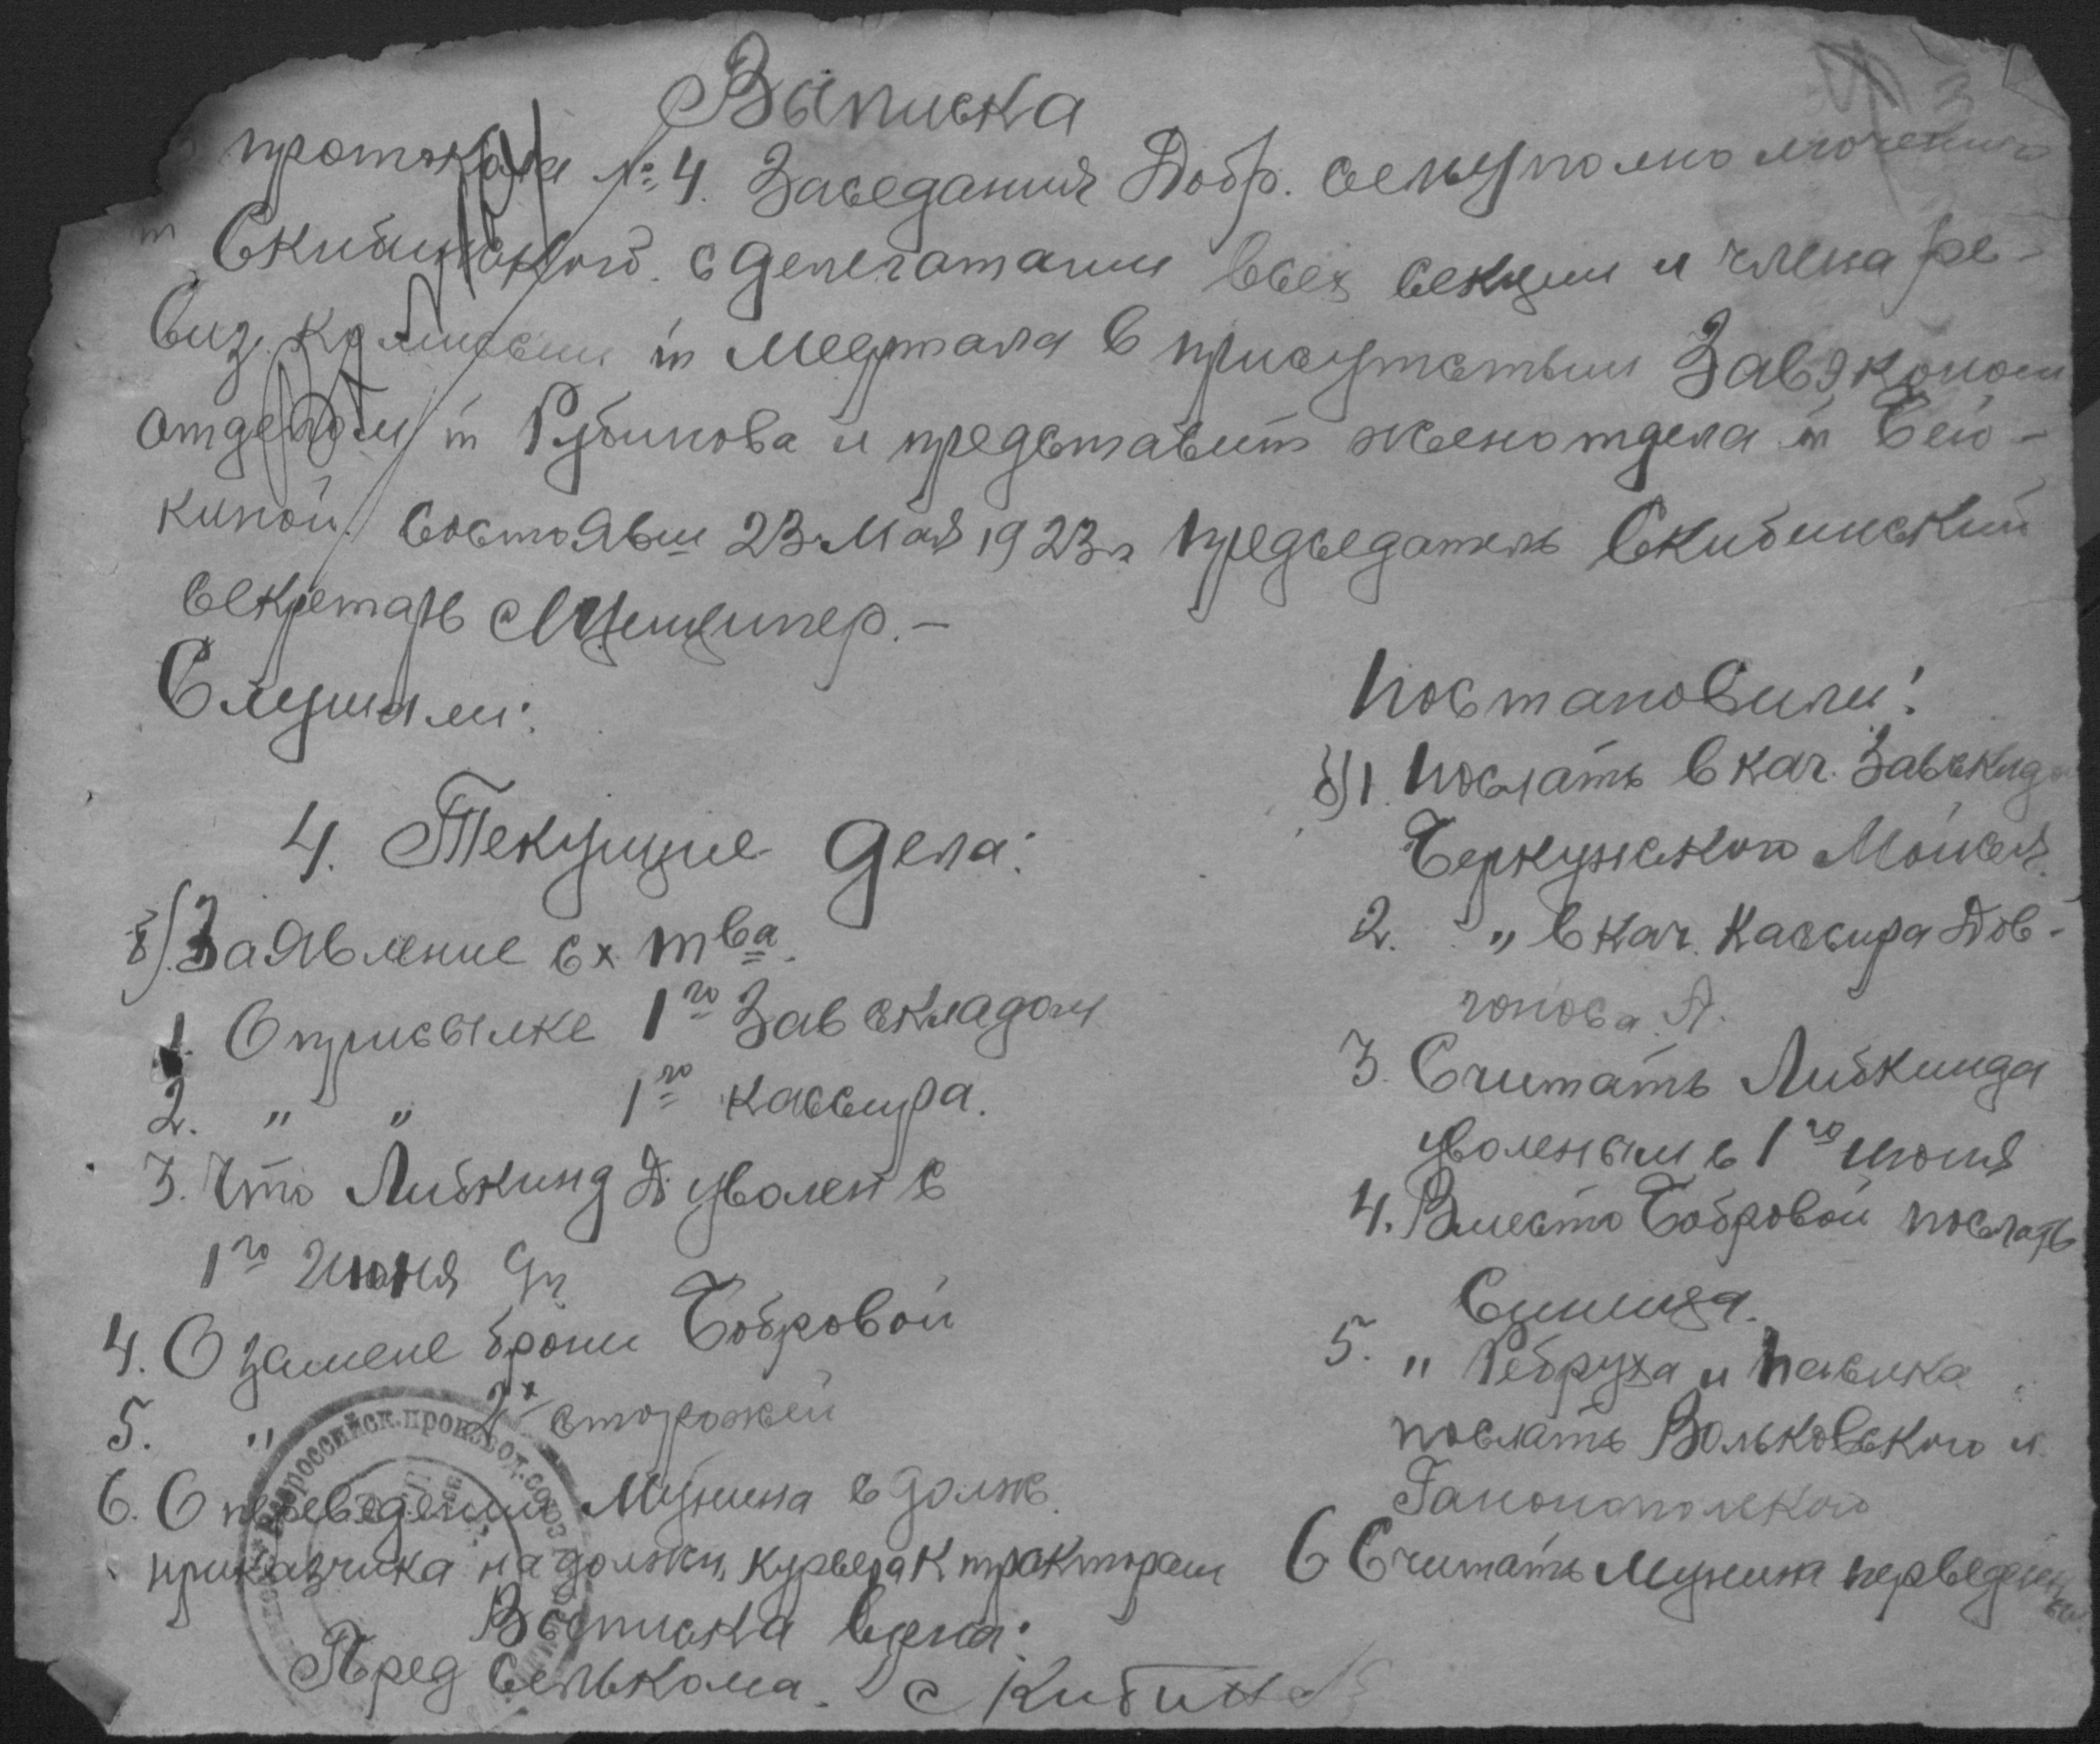 Выписка
протокола № 4. Заседания Добр. сельуполномоченного
т Скибинского с делегатами всех секции и члена ре-
виз. комиссии т Медртала в присутствии Завэконом
отделом т Рубинова и представит женотдела т Бей-
киной. Состоявш 23 мая 1923 г Председатель Скибинский
секретарь Мценципер.-
Слушали:
4. Текущие дела:
б). Заявление сх тва.
1. О присылке 1го Зав складом
2. " " 1го кассира.
3. Что Либкинд Д уволен с
1го Июня
4. О замене брони Бобровой
5. " 2х сторожей
6. О переведении Мунина с долж.
приказчика на должн. курьера к тракторам
Постановили:
б) 1. Послать в кач. Завсклада
Беркунского Моисея.
2. " в кач. Кассира Дов-
гопоса А.
3. Считать Либкинда
уволеным с 1го июня
4. Вместо Бобровой послать
5. " Ребруха и Павика
послать Вольковского и
6 Считать Мунина переведеным
Выписка верна:
Пред Селькома. Скибин
Всероссийск. производ. союз